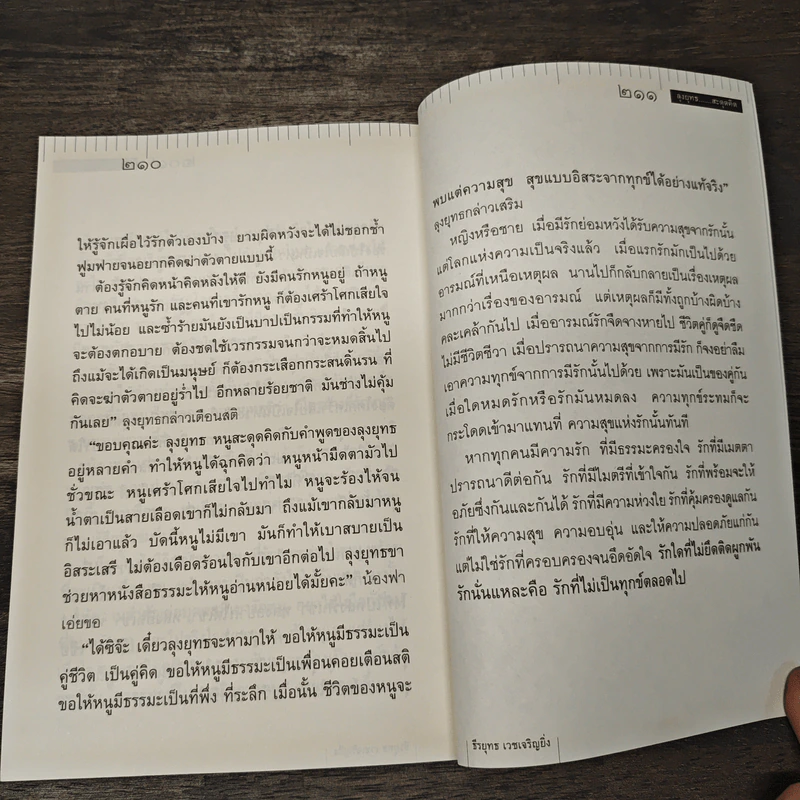 ๒๑๐
ให้รู้จักเผื่อไว้รักตัวเองบ้าง ยามผิดหวังจะได้ไม่ชอกช้ำ
ฟูมฟายจนอยากคิดฆ่าตัวตายแบบนี้
ต้องรู้จักคิดหน้าคิดหลังให้ดี ยังมีคนรักหนูอยู่ ถ้าหนู
ตาย คนที่หนูรัก และคนที่เขารักหนู ก็ต้องเศร้าโศกเสียใจ
ไปไม่น้อย และซ้ำร้ายมันยังเป็นบาปเป็นกรรมที่ทำให้หนู
จะต้องตกอบาย ต้องชดใช้เวรกรรมจนกว่าจะหมดสิ้นไป
ถึงแม้จะได้เกิดเป็นมนุษย์ ก็ต้องกระเสือกกระสนดิ้นรน ที่
คิดจะฆ่าตัวตายอยู่ร่ำไป อีกหลายร้อยชาติ มันช่างไม่คุ้ม
กันเลย” ลุงยุทธกล่าวเตือนสติ
“ขอบคุณค่ะ ลุงยุทธ หนูสะดุดคิดกับคำพูดของลุงยุทธ
อยู่หลายคำ ทำให้หนูได้ฉุกคิดว่า หนูหน้ามืดตามัวไป
ชั่วขณะ หนูเศร้าโศกเสียใจไปทำไม หนูจะร้องไห้จน
น้ำตาเป็นสายเลือดเขาก็ไม่กลับมา ถึงแม้เขากลับมาหนู
ก็ไม่เอาแล้ว บัดนี้หนูไม่มีเขา มันก็ทำให้เบาสบายเป็น
อิสระเสรี ไม่ต้องเดือดร้อนใจกับเขาอีกต่อไป ลุงยุทธขา
ช่วยหาหนังสือธรรมะให้หนูอ่านหน่อยได้มั้ยคะ” น้องฟา
เอ่ยขอ
“ได้ซิจ๊ะ เดี๋ยวลุงยุทธจะหามาให้ ขอให้หนูมีธรรมะเป็น
คู่ชีวิต เป็นคู่คิด ขอให้หนูมีธรรมะเป็นเพื่อนคอยเตือนสติ
ขอให้หนูมีธรรมะเป็นที่พึ่ง ที่ระลึก เมื่อนั้น ชีวิตของหนูจะ
๒๑๑ ลุงยุทธ......สะดุดคิด
พบแต่ความสุข สุขแบบอิสระจากทุกข์ได้อย่างแท้จริง”
ลุงยุทธกล่าวเสริม
หญิงหรือชาย เมื่อมีรักย่อมหวังได้รับความสุขจากรักนั้น
แต่โลกแห่งความเป็นจริงแล้ว เมื่อแรกรักมักเป็นไปด้วย
อารมณ์ที่เหนือเหตุผล นานไปก็กลับกลายเป็นเรื่องเหตุผล
มากกว่าเรื่องของอารมณ์ แต่เหตุผลก็มีทั้งถูกบ้างผิดบ้าง
คละเคล้ากันไป เมื่ออารมณ์รักจืดจางหายไป ชีวิตคู่ก็ดูจืดชืด
ไม่มีชีวิตชีวา เมื่อปรารถนาความสุขจากการมีรัก ก็จงอย่าลืม
เอาความทุกข์จากการมีรักนั้นไปด้วย เพราะมันเป็นของคู่กัน
เมื่อใดหมดรักหรือรักมันหมดลง ความทุกข์ระทมก็จะ
กระโดดเข้ามาแทนที่ ความสุขแห่งรักนั้นทันที
หากทุกคนมีความรัก ที่มีธรรมะครองใจ รักที่มีเมตตา
ปรารถนาดีต่อกัน รักที่มีไมตรีที่เข้าใจกัน รักที่พร้อมจะให้
อภัยซึ่งกันและกันได้ รักที่มีความห่วงใย รักที่คุ้มครองดูแลกัน
รักที่ให้ความสุข ความอบอุ่น และให้ความปลอดภัยแก่กัน
แต่ไม่ใช่รักที่ครอบครองจนอึดอัดใจ รักใดที่ไม่ยึดติดผูกพัน
รักนั่นแหละคือ รักที่ไม่เป็นทุกข์ตลอดไป
ธีรยุทธ เวชเจริญยิ่ง